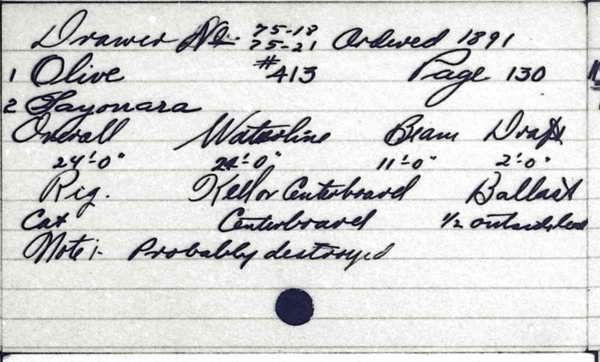 Drawer No. 75-18
75-21 Ordered 1891
1 Olive #413 Page 130
2 Sayonara
Overall Waterline Beam Draft
24'-0" 22'-0" 11'-0" 2'-0"
Rig. Keel or Centerboard Ballast
Cat Centerboard 1/2 outside lead
Note:- Probably destroyed